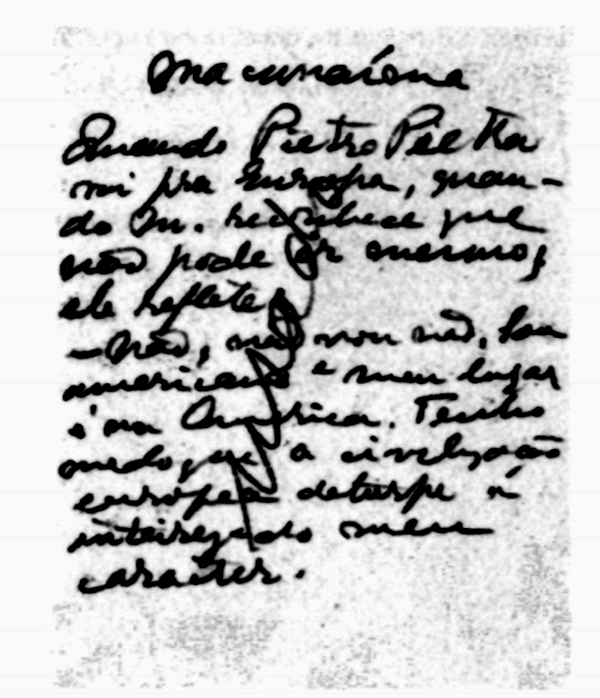 Macunaíma
Quando Pietro Pietra
vai pra Europa, quan-
do M. reconhece que
não pode ir mesmo,
ele reflete
– Não, não vou não. Sou
americano e meu lugar
é na América. Tenho
medo que a civilização
europea deturpe a
inteireza do meu
caracter.